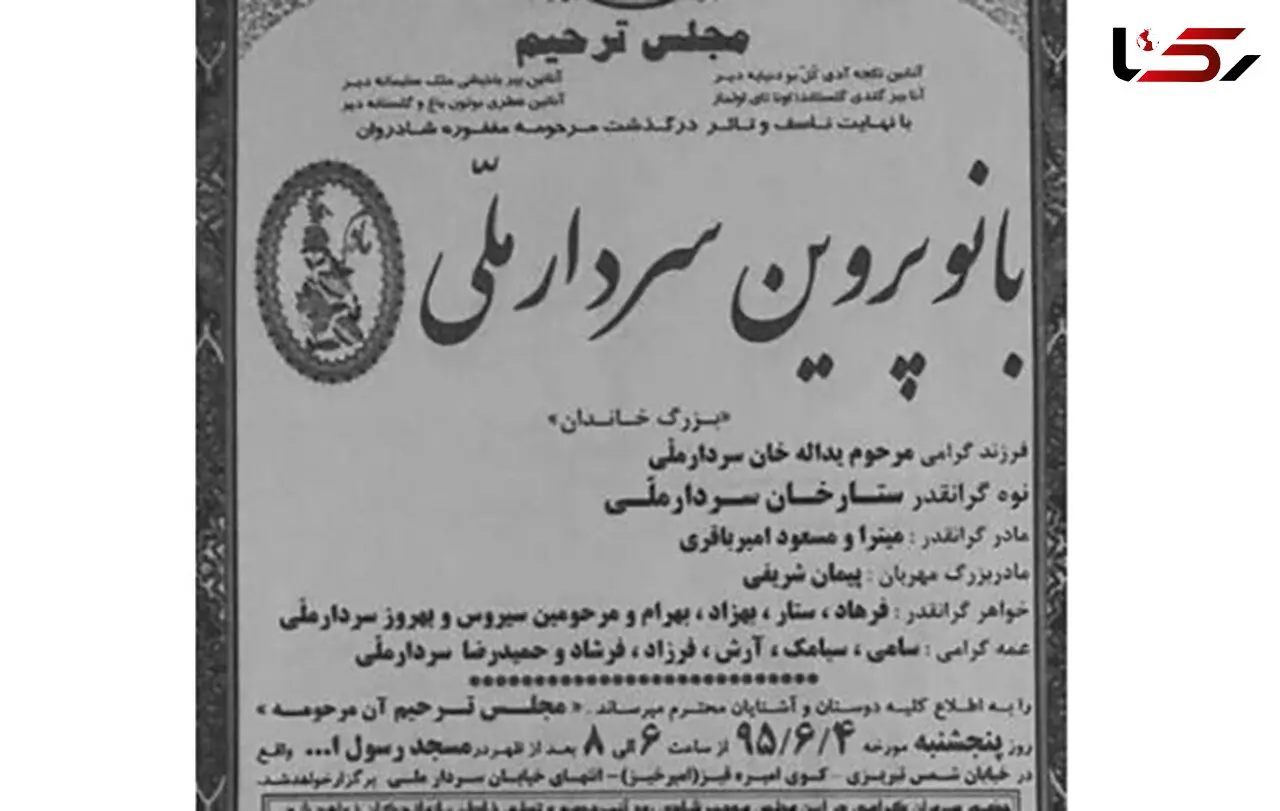 رکنا
مجلس ترحیم
آنانین نکجه آدی گل بو دنیایه دیر
آنانین بیر باخیشی ملک سلیمانه دیر
آنا بیز گلدی گلستاندا اونا تای اولماز
آنانین عطری بوتون باغ و گلستانه دیر
با نهایت تاسف و تاثر درگذشت مرحومه مغفوره شادروان
بانو پروین سردار ملّی
مادر
«بزرگ خاندان»
فرزند گرامی مرحوم یداله خان سردارملّی
نوه گرانقدر ستارخان سردارملّی
مادر گرانقدر : میترا و مسعود امیرباقری
مادربزرگ مهربان : پیمان شریفی
خواهر گرانقدر : فرهاد ، ستار ، بهزاد ، بهرام و مرحومین سیروس و بهروز سردارملّی
عمه گرامی : سامی ، سیامک ، آرش ، فرزاد ، فرشاد و حمیدرضا سردارملّی
را به اطلاع کلیه دوستان و آشنایان محترم میرساند . « مجلس ترحیم آن مرحومه »
روز پنجشنبه مورخه ۹۵/۶/۴ از ساعت ۶ الی ۸ بعد از ظهر در مسجد رسول ا... واقع
در خیابان شمس تبریزی - کوی امیره قیز(امیرخیز)- انتهای خیابان سردار ملی برگزار خواهد شد.